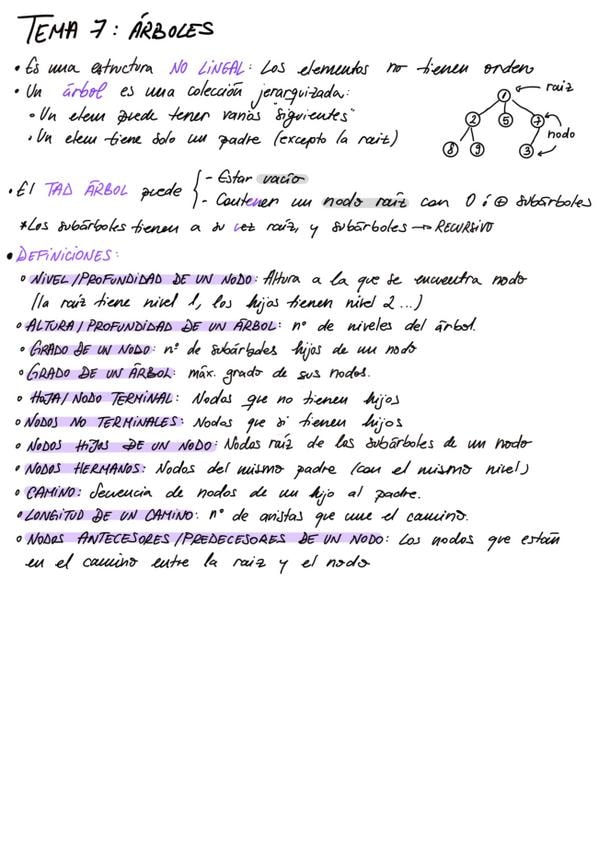 TEMA 7: ÁRBOLES
• Es una estructura NO LINEAL: Los elementos no tienen orden
• Un árbol es una colección jerarquizada:
• Un elem puede tener varios "siguientes"
• Un elem tiene solo un padre (excepto la raiz)
1 raiz
2 5 7
nodo
8 9 3
• El TAD ÁRBOL puede { - Estar vacío
- Contener un nodo raíz con 0 ó ⊕ subárboles
*Los subárboles tienen a su vez raíz, y subárboles → RECURSIVO
• DEFINICIONES:
• NIVEL/PROFUNDIDAD DE UN NODO: Altura a la que se encuentra nodo
(la raíz tiene nivel 1, los hijos tienen nivel 2 ...)
• ALTURA/PROFUNDIDAD DE UN ÁRBOL: nº de niveles del árbol.
• GRADO DE UN NODO: nº de subárboles hijos de un nodo
• GRADO DE UN ÁRBOL: máx. grado de sus nodos.
• HOJA/NODO TERMINAL: Nodos que no tienen hijos
• NODOS NO TERMINALES: Nodos que si tienen hijos
• NODOS HIJOS DE UN NODO: Nodos raíz de los subárboles de un nodo
• NODOS HERMANOS: Nodos del mismo padre (con el mismo nivel)
• CAMINO: Secuencia de nodos de un hijo al padre.
• LONGITUD DE UN CAMINO: nº de aristas que une el camino.
• NODOS ANTECESORES/PREDECESORES DE UN NODO: Los nodos que están
en el camino entre la raiz y el nodo